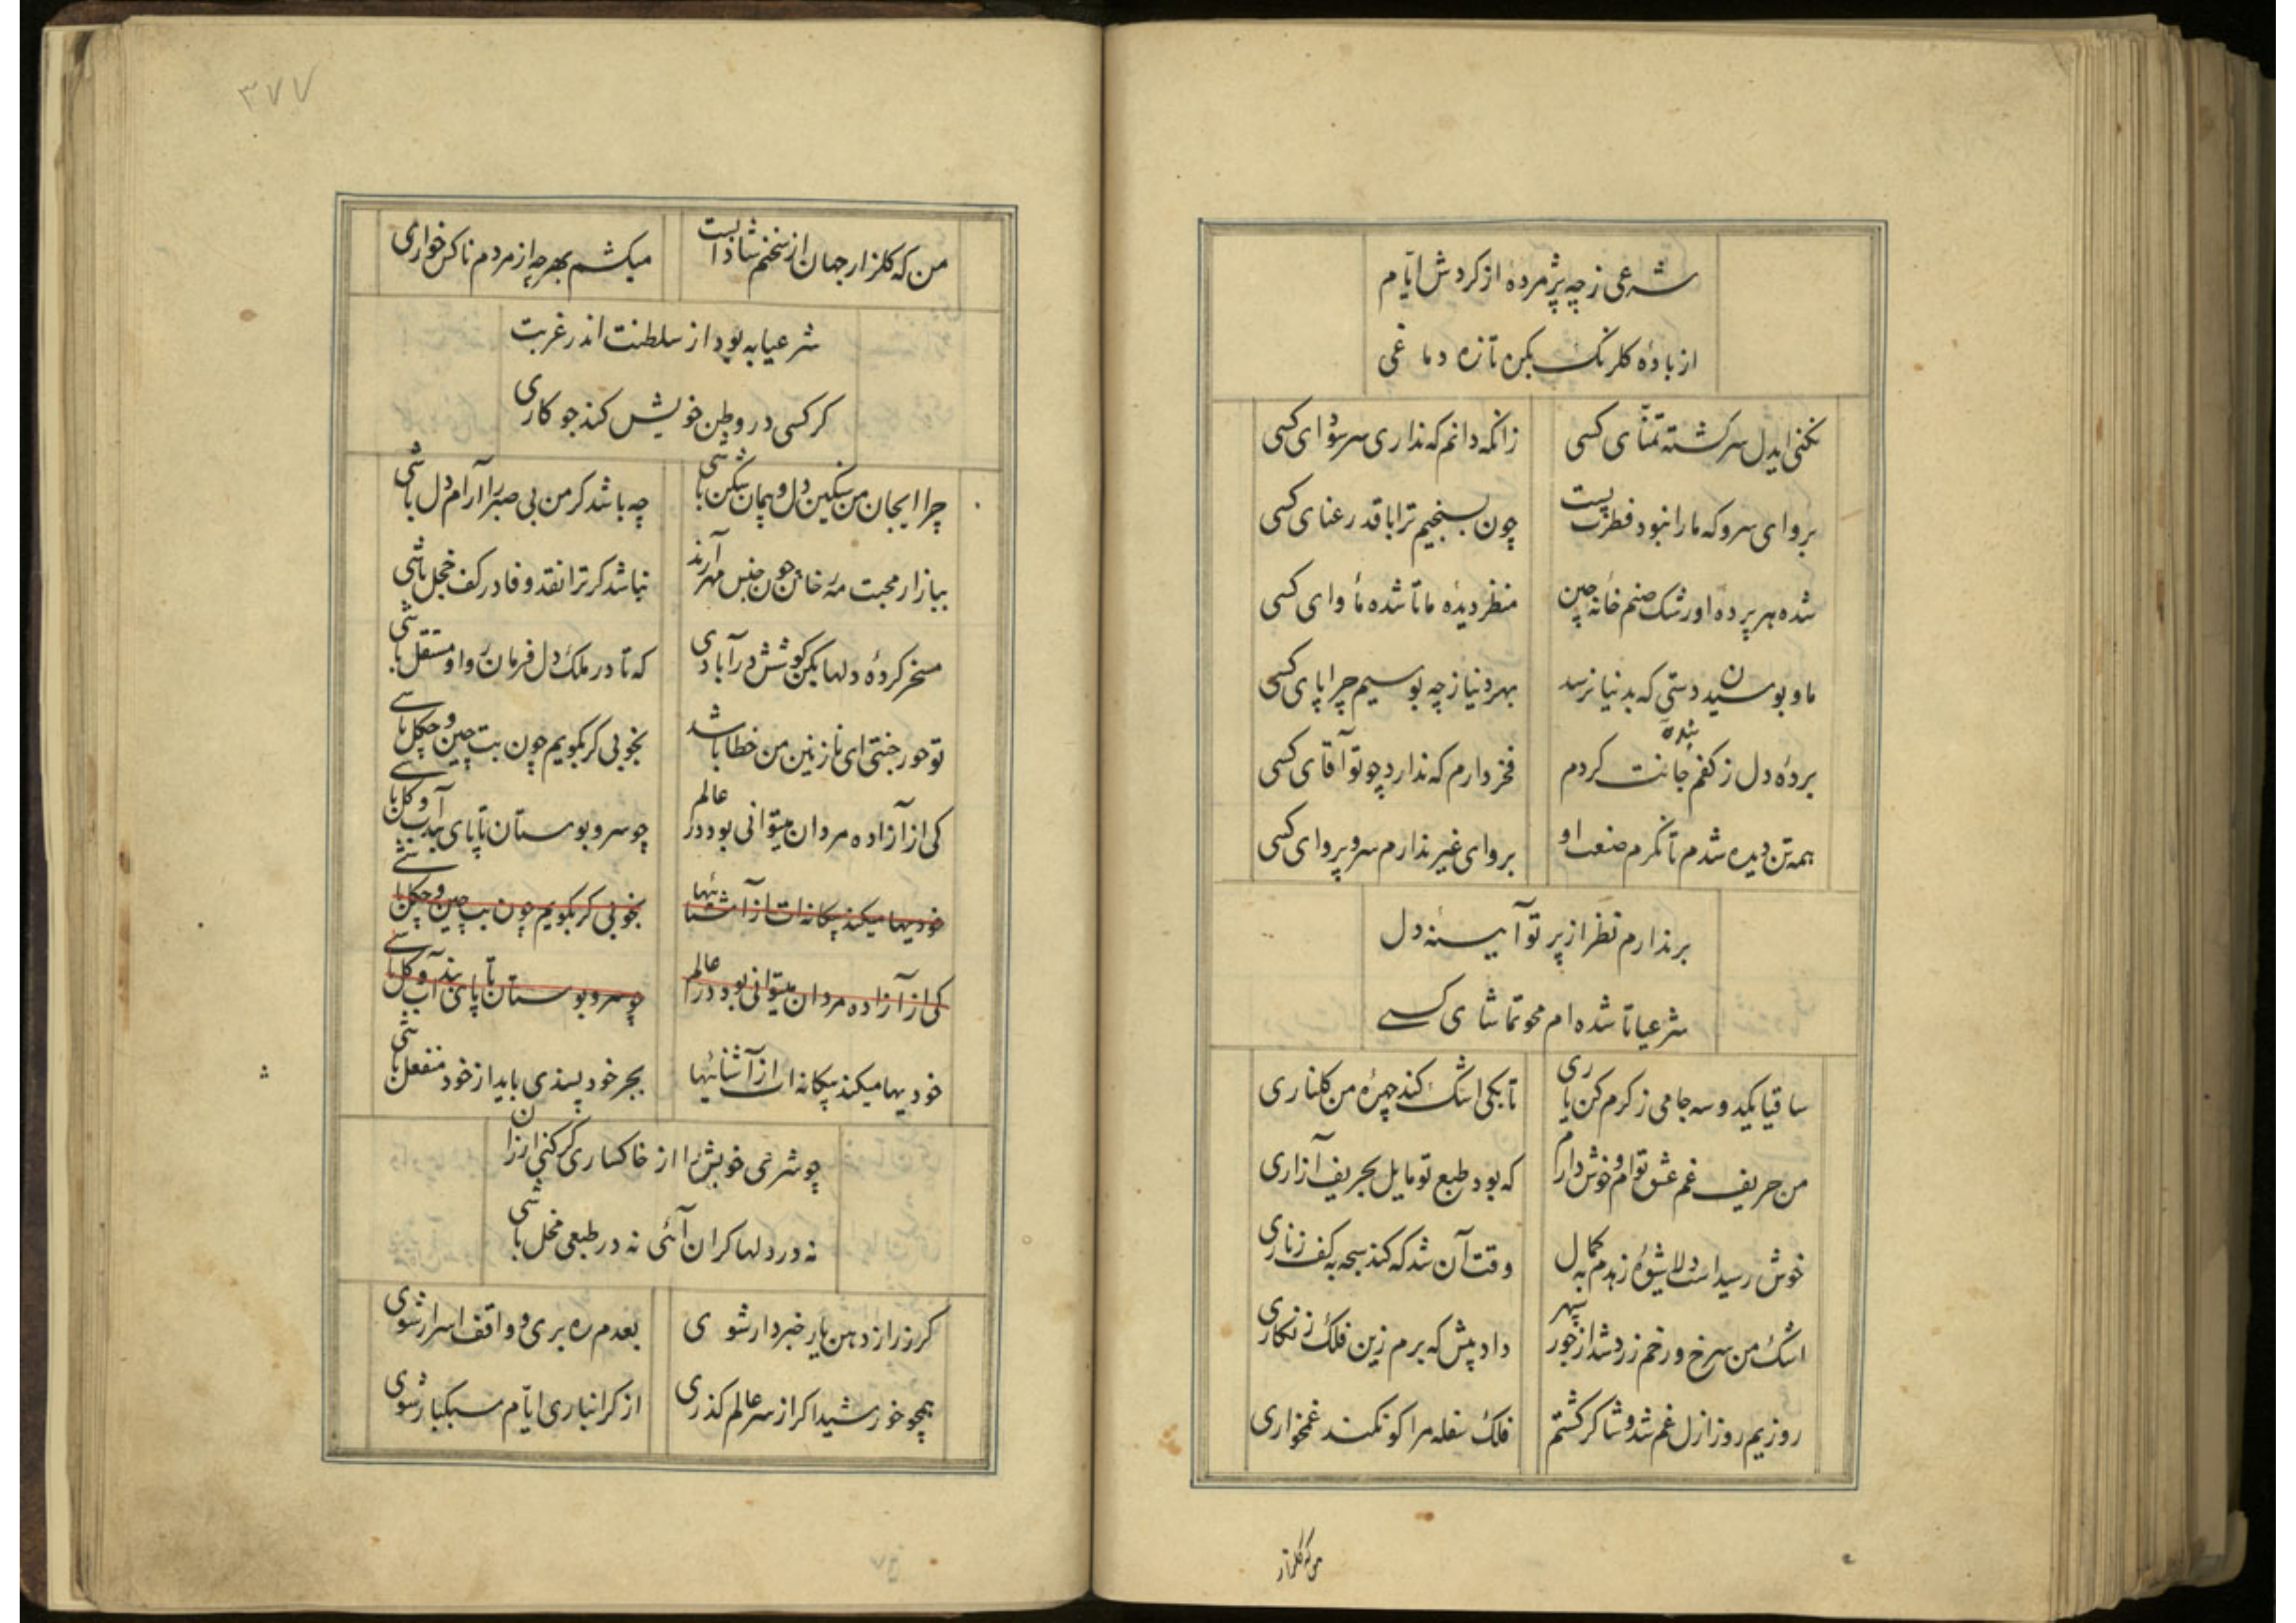 شرعی ز چه پژمردهٔ از کردش ایّام
از بادهٔ کلرنک بکن تازه دماغی
نکنی ایدل سرکشته تمنّای کسی زانکه دانم که نداری سر سودای کسی
برو ای سرو که ما را نبود فطرت پست چون بسنجیم ترا با قد رعنای کسی
شده هر پردهٔ او رشک صنم خانهٔ چین منظر دیدهٔ ما تا شده مأوای کسی
ما و بوسیدن دستی که بدنیا نرسد بهر دنیا ز چه بوسیم چرا پای کسی
بردهٔ دل ز کفم بندهٔ جانت کردم فخر دارم که ندارد چو تو آقای کسی
همه تن دیده شدم تا نکرم صنعت او بروای غیر ندارم سر و پروای کسی
برندارم نظر از پرتو آیینهٔ دل
شرعیا تا شده‌ام محو تماشای کسی
ساقیا یکدو سه جامی ز کرم کن یاری تا بکی اشک کند چهرهٔ من کلناری
من حریف غم عشق توام و خوش دارم که بود طبع تو مایل بحریف آزاری
خوش رسید است دلا شیوهٔ زهدم بکمال وقت آن شد که کند سبحه به کف زناری
اشک من سرخ و رخم زرد شد از جور سپهر داد پیش که برم زین فلک زنکاری
روزیم روز ازل غم شد و شاکر کشتم فلک سفله مرا کو نکند غمخواری
من که کلزار
۳۷۷
من که کلزار جهان از سخنم شادابست میکشم بهر چه از مردم ناکس خواری
شرعیا به بود از سلطنت اندر غربت
کر کسی در وطن خویش کند جو کاری
چرا ایجان من سنکین دل و پیمان شکن باشی چه باشد کر من بی صبر را آرام دل باشی
ببازار محبت جون جنس مهر آرند نباشد کر ترا نقد وفا در کف خجل باشی
مسخر کردهٔ دلها بکن کوشش در آبادی که تا در ملک دل فرمان روا و مستقل باشی
تو حور جنتی ای نازنین من خطا باشد بخوبی کر بکویم چون بت چین و چکل باشی
کی از آزاده مردان میتوانی بود در عالم چو سرو بوستان تا پای بند آب و کل باشی
خود بیها میکند بیکانه‌ات از آشنائیها بخوبی کر بکویم چون بت چین و چکل باشی
کی از آزاده مردان میتوانی بود در عالم چو سرو بوستان تا پای بند آب و کل باشی
خود بیها میکند بیکانه‌ات از آشنائیها بجر خود پسندی باید از خود منفعل باشی
چو شرعی خویش را از خاکساری کر کنی ارزان
نه در دلها کران آئی نه در طبعی مخل باشی
کر ز راز دهن یار خبردار شوی بعدم ره بری و واقف اسرار شوی
همچو خورشید اکر از سر عالم کذری از کرانباری ایّام سبکبار شوی